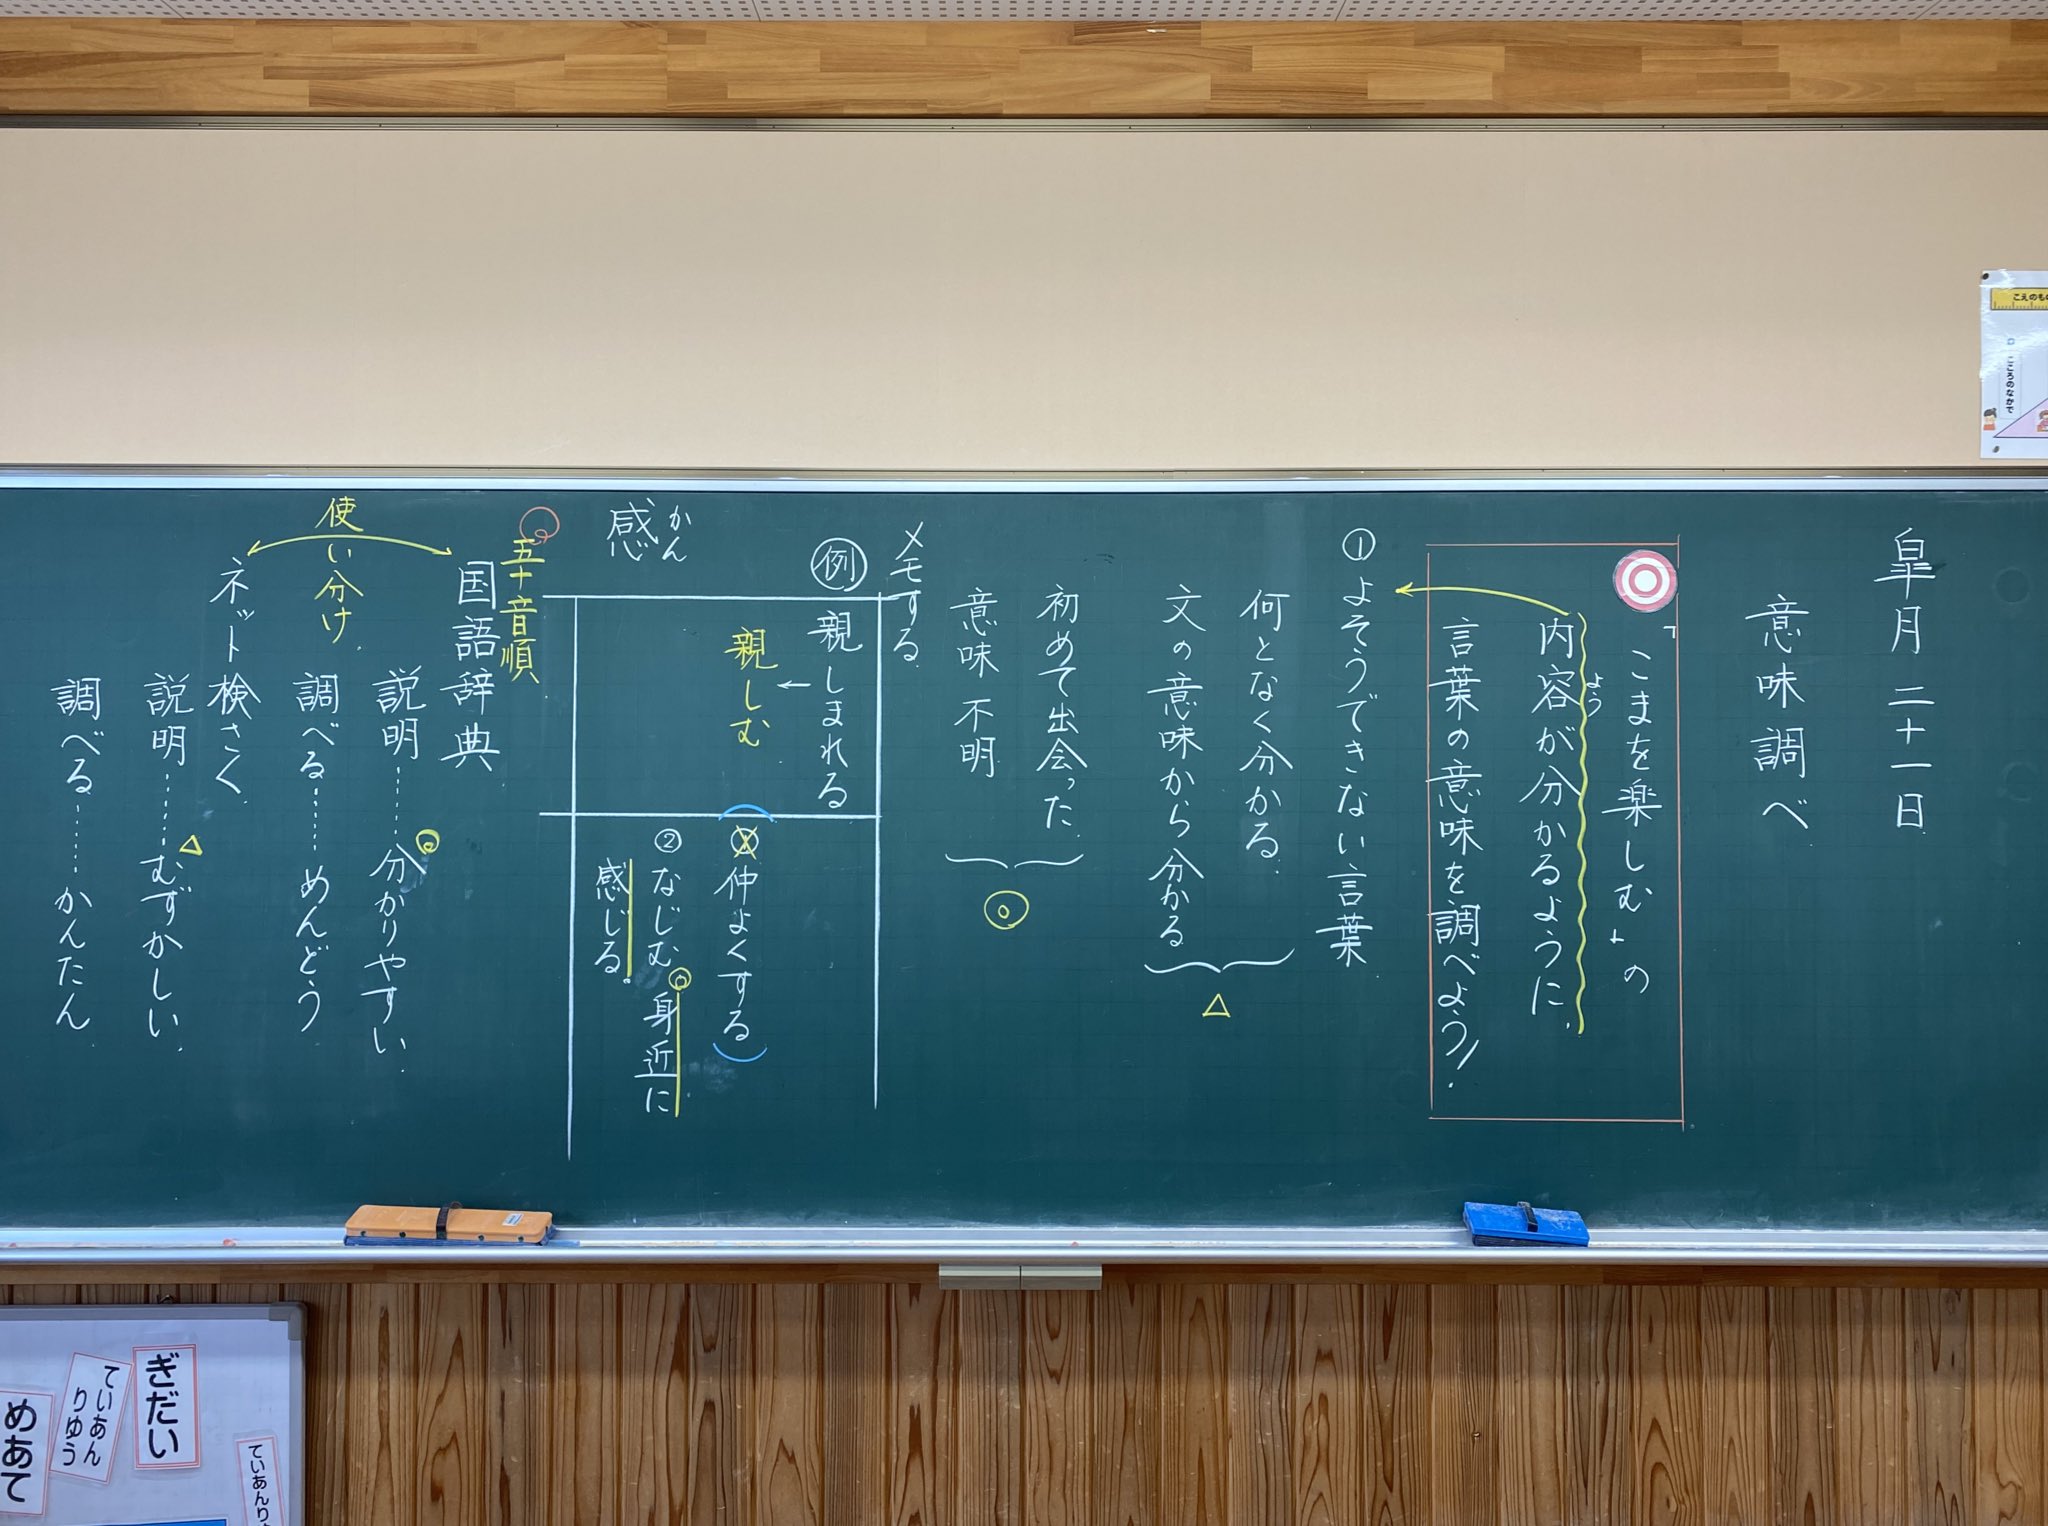 皐月 二十一日
意味調べ
「こまを楽しむ」の
内容が分かるように、
よう
言葉の意味を調べよう!
①よそうできない言葉
何となく分かる。
文の意味から分かる
△
初めて出会った
意味不明
◎
メモする
例
親しまれる
←
親しむ
①仲よくする
②なじむ
◎
身近に
感じる。
感
かん
五十音順
国語辞典
説明……分かりやすい。
◎
調べる……めんどう
使い分け
ネット検さく
説明……むずかしい。
△
調べる……かんたん。
こえのも
こころのなかで
ぎだい
ていあん
りゆう
めあて
ていあんり